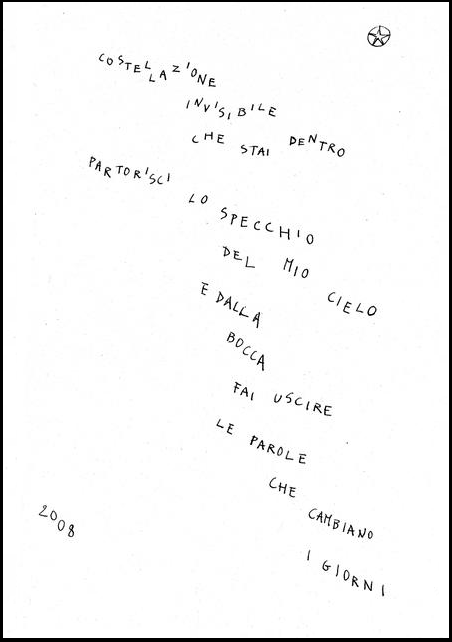 COSTELLAZIONE
INVISIBILE
CHE STAI DENTRO
PARTORISCI LO SPECCHIO
DEL MIO CIELO
E DALLA
BOCCA
FAI USCIRE
LE PAROLE
CHE CAMBIANO
I GIORNI
2008